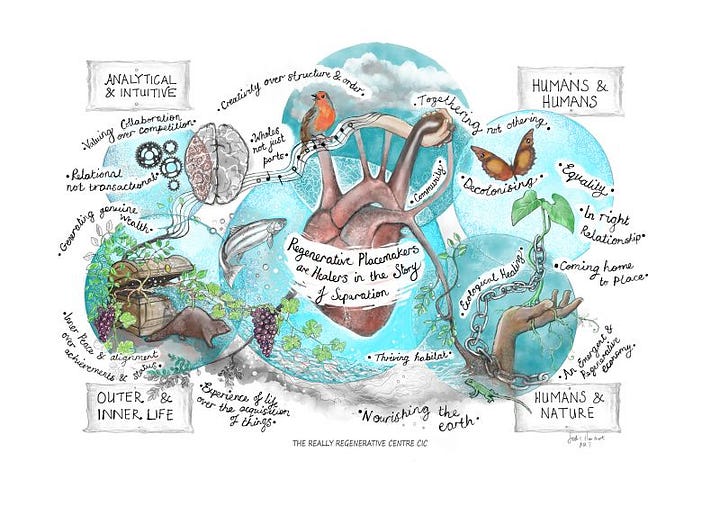 ANALYTICAL
& INTUITIVE
HUMANS &
HUMANS
• Creativity over structure & order •
• Togethering not othering •
• Valuing Collaboration
over competition •
• Wholes
not just
parts •
• Relational
not transactional •
• Community •
• Decolonising •
• Equality •
• In right
Relationship •
• Generating genuine
wealth •
Regenerative Placemakers
are Healers in the Story
of Separation
• Ecological Healing •
• Coming home
to place •
• Inner Peace & alignment
over achievements & status •
• Thriving habitat •
• An Emergent &
Regenerative
economy •
OUTER &
INNER LIFE
• Experience of life
over the acquisition
of things •
• Nourishing the
earth •
HUMANS &
NATURE
THE REALLY REGENERATIVE CENTRE CIC